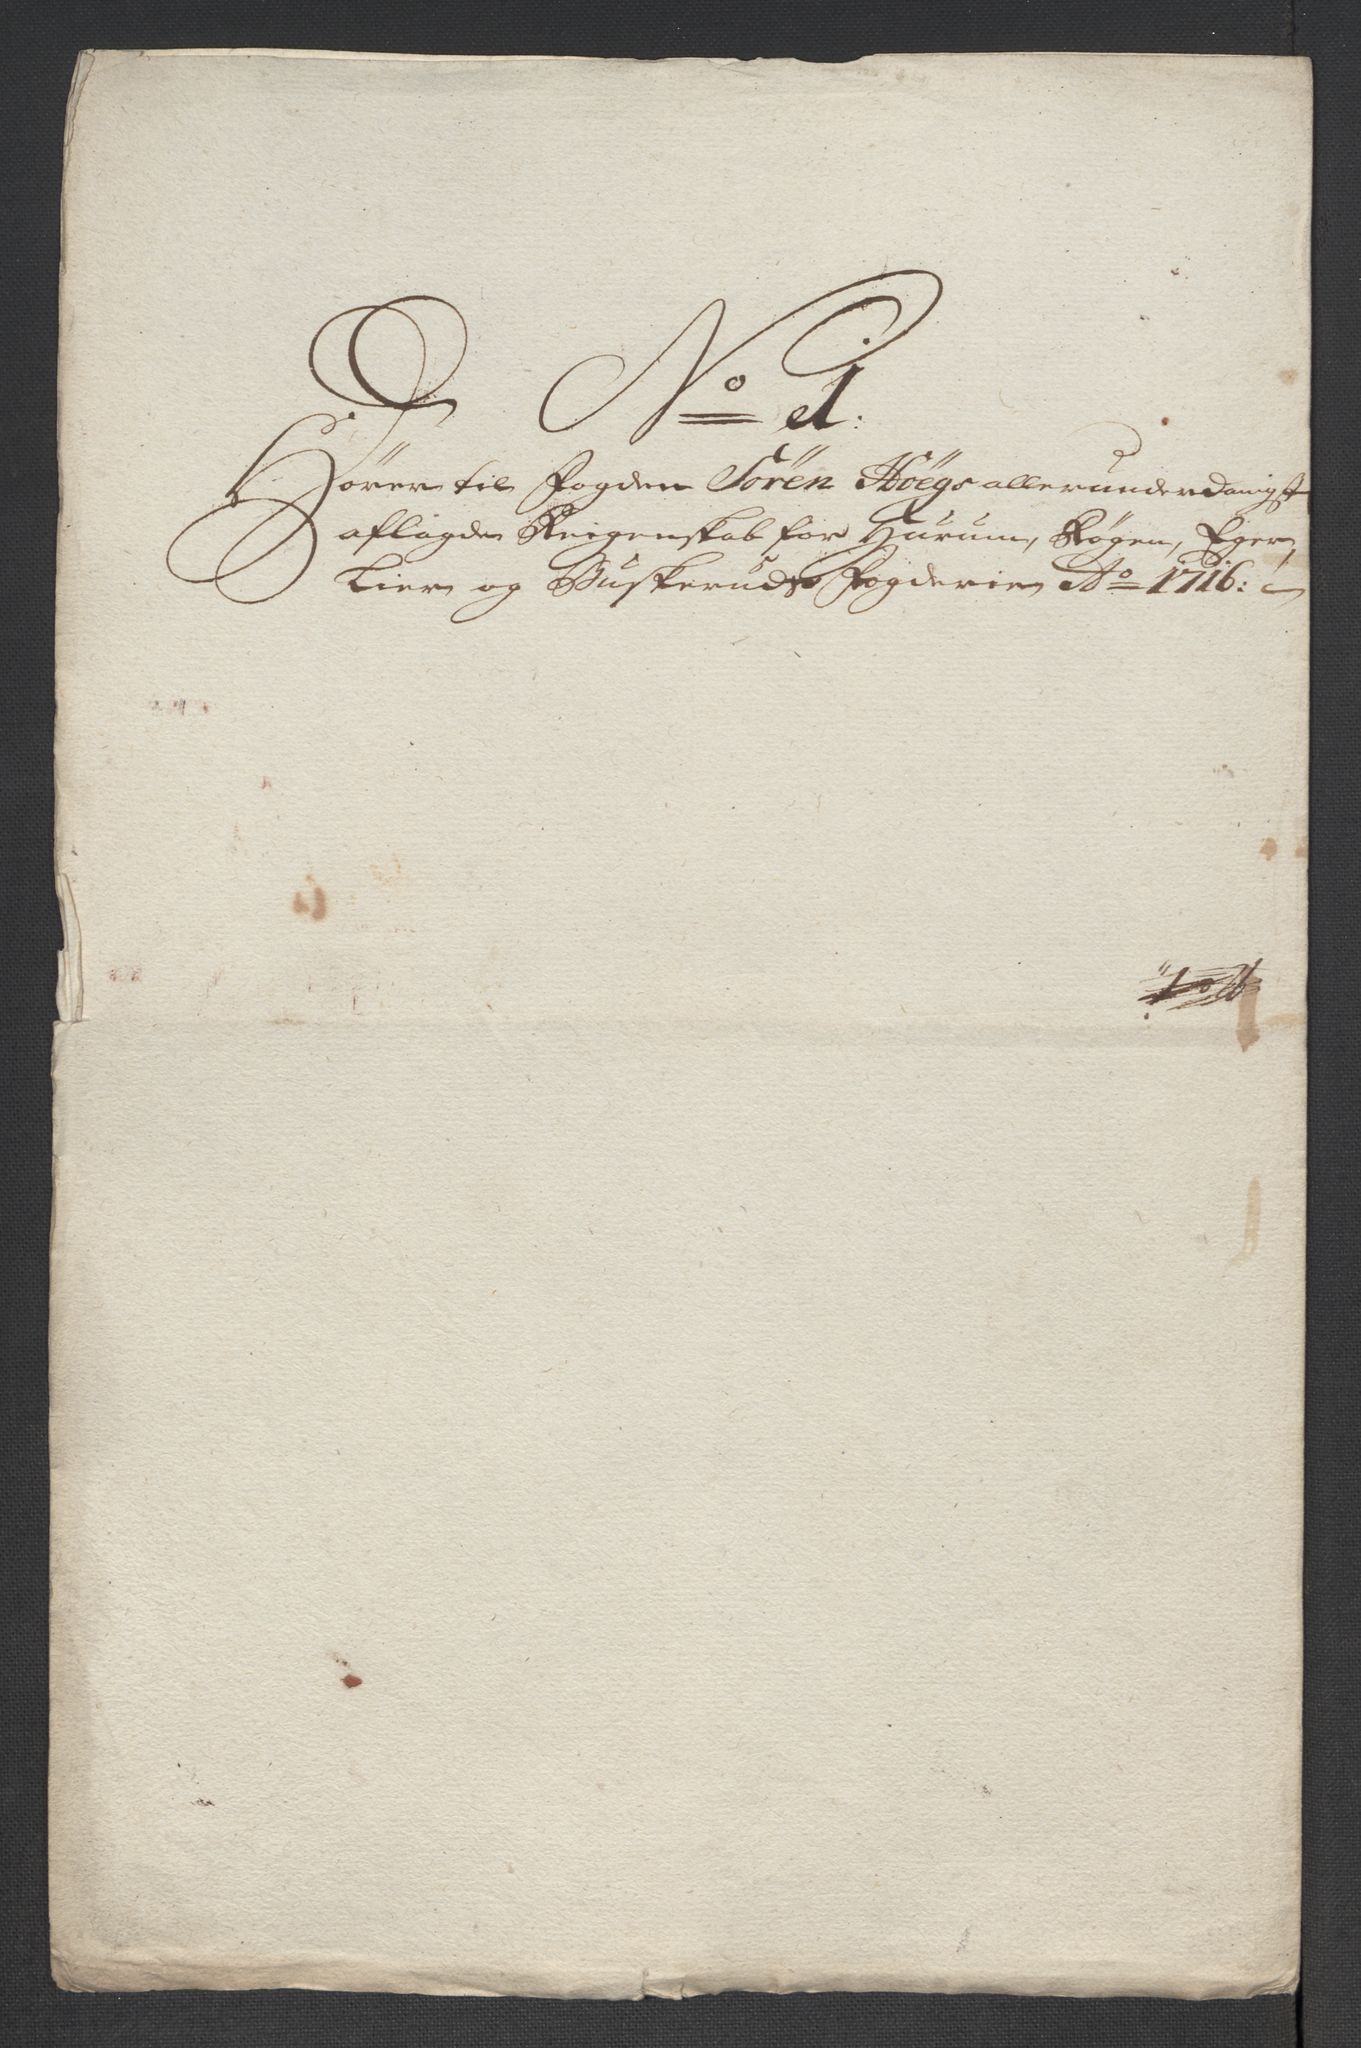 No 1.
Hörer til Fogden Sören Höegs allerunderdanigst
aflagde Reigenskab for Hurum, Rögen, Eger,
Lier og Buskeruds Fogderie Ao 1716: